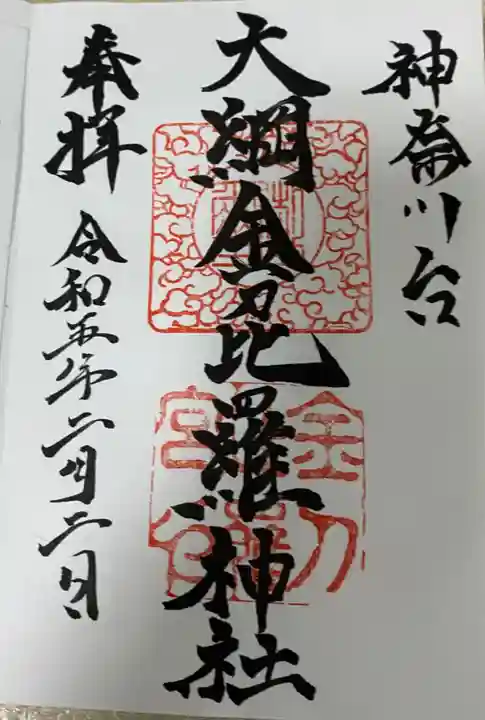 神奈川台
大綱金刀比羅神社
奉拝
令和五年二月二日